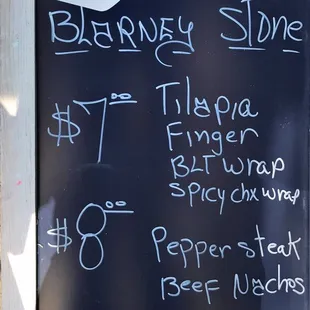 Blarney Stone
$7.00 Tilapia
Finger
BLT wrap
Spicy chx wrap
$8.00 Pepper steak
Beef Nachos